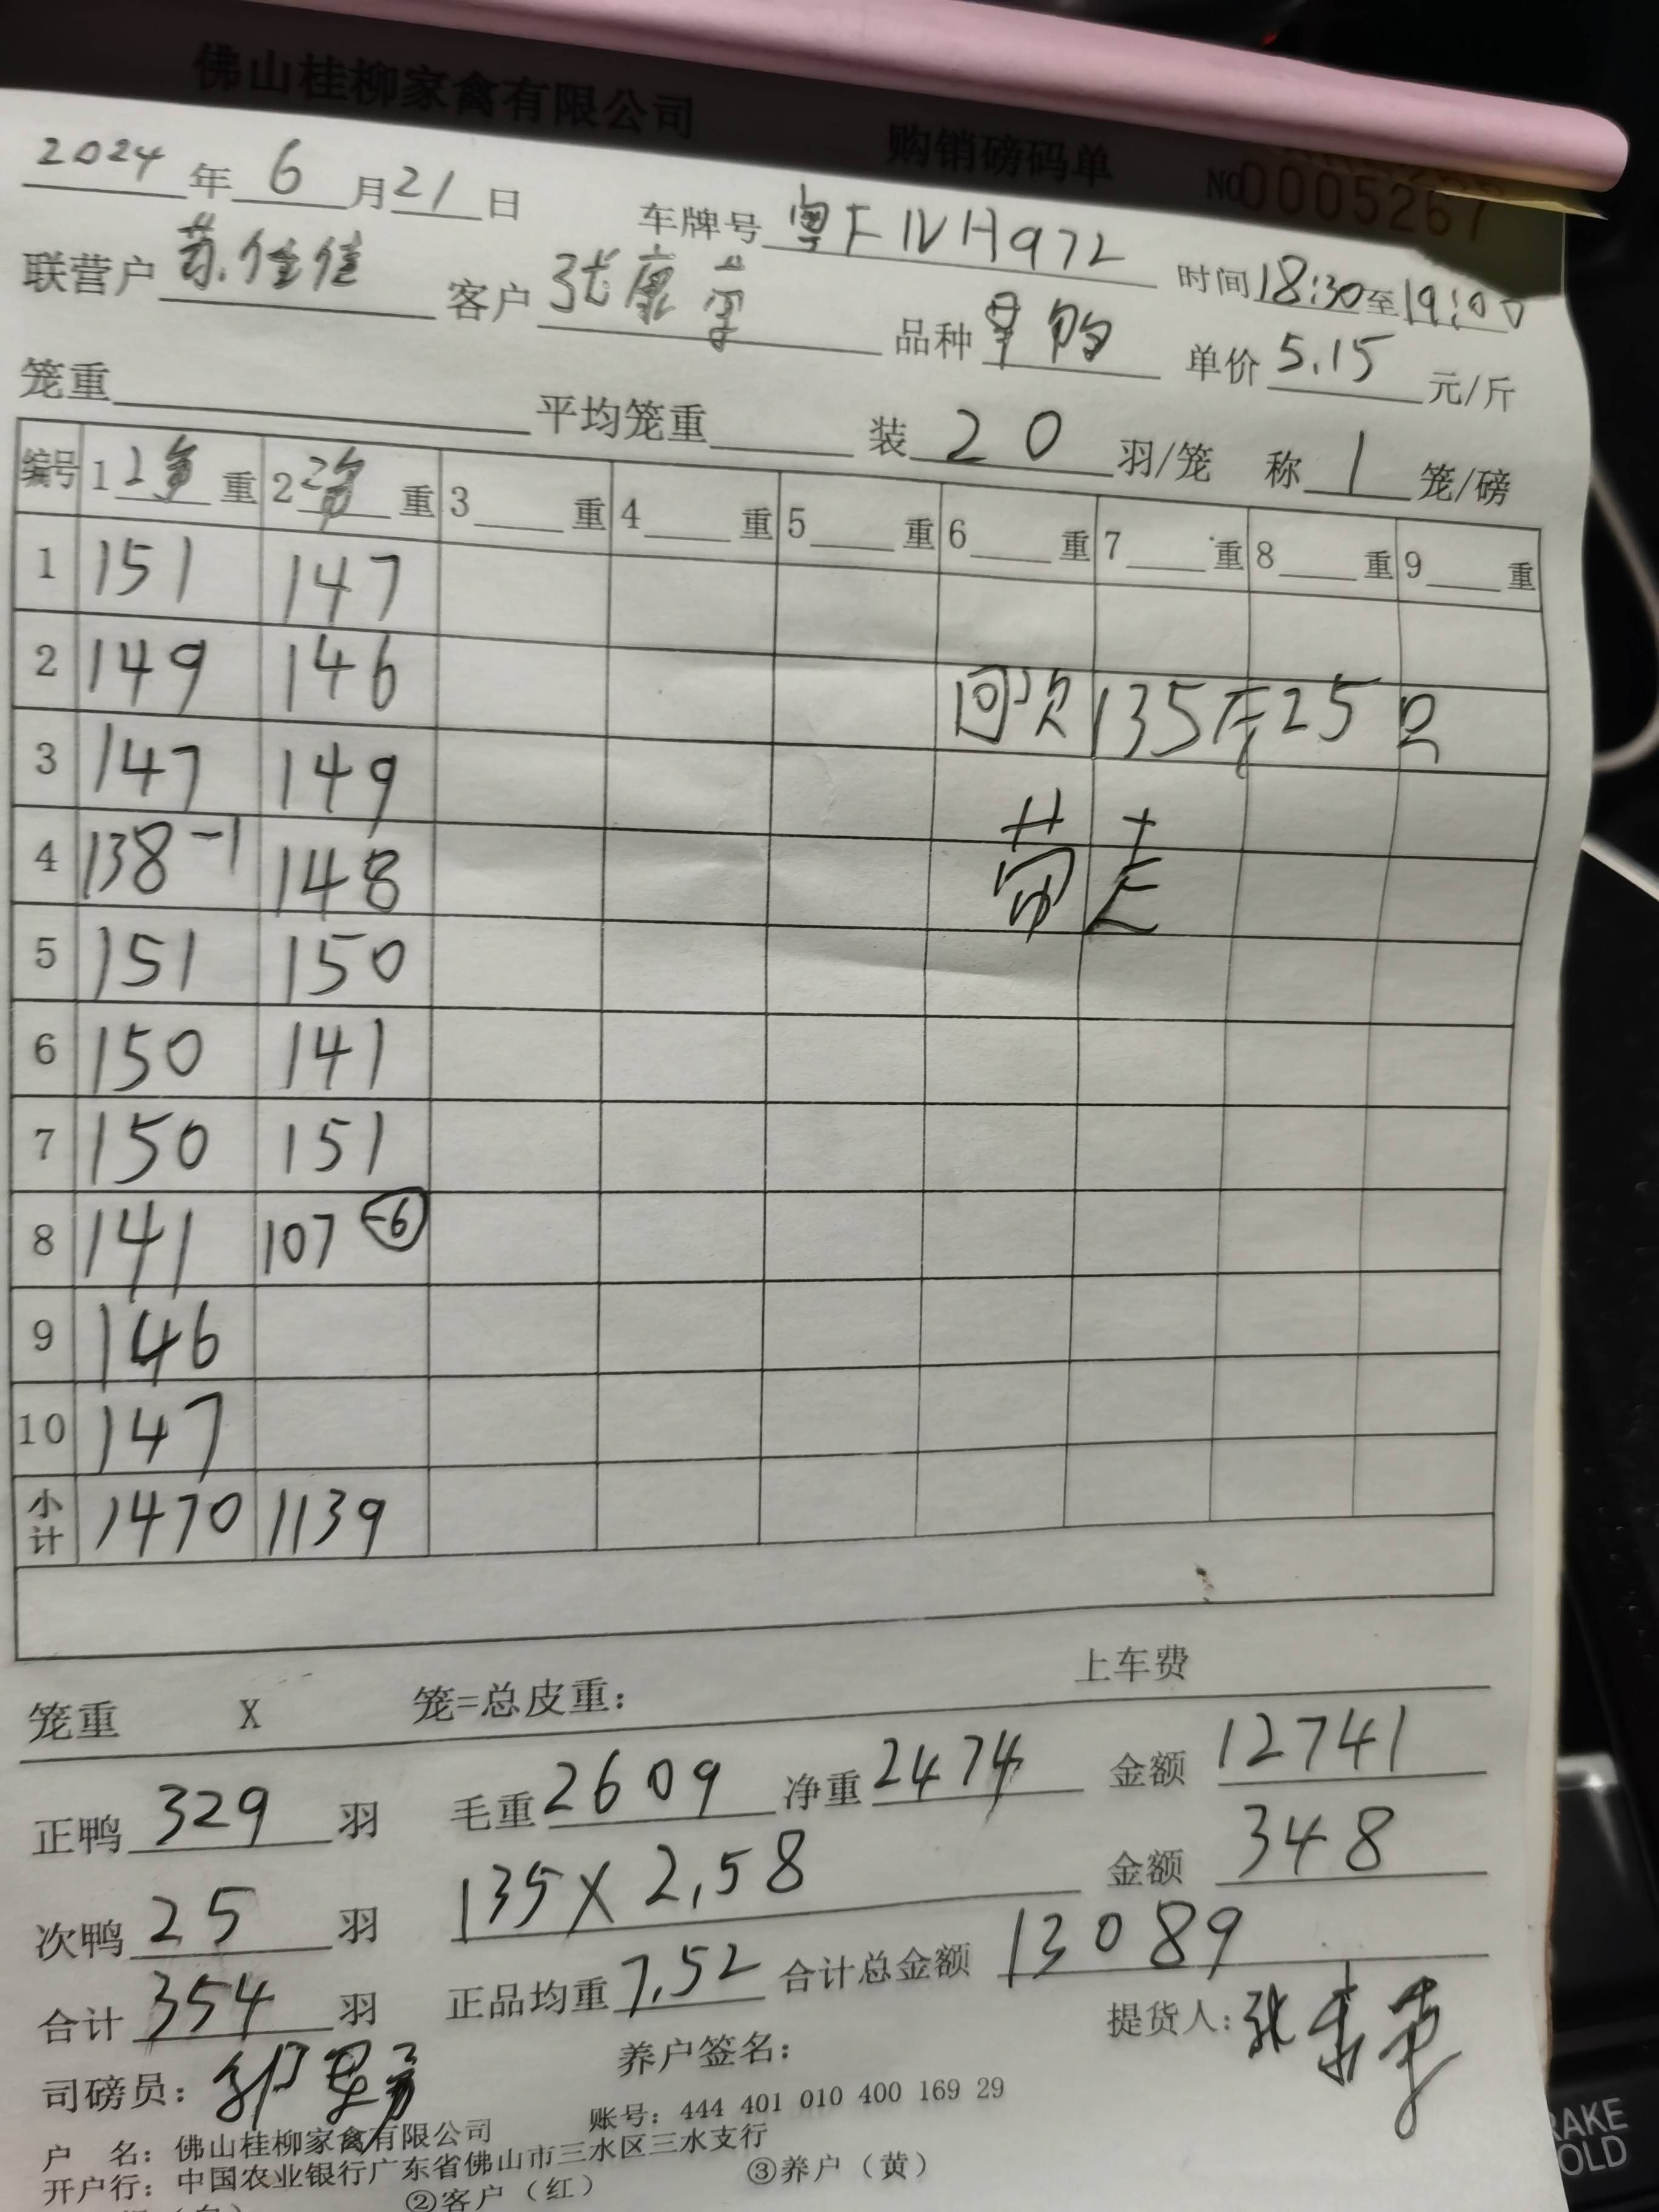 佛山桂柳家禽有限公司 购销磅码单 NO0005267
2024年6月21日 车牌号 粤F 时间18:30至19:00
联营户 苏 客户 张康 品种 单价5.15元/斤
笼重 平均笼重 装20羽/笼 称1笼/磅
编号 1 净重 2 净重 3 重 4 重 5 重 6 重 7 重 8 重 9 重
1 151 147
2 149 146 回次135斤25只
3 147 149
4 138-1 148 带走
5 151 150
6 150 141
7 150 151
8 141 107 -6
9 146
10 147
小计 1470 1139
上车费
笼重 X 笼=总皮重：
正鸭329羽 毛重2609 净重2474 金额12741
次鸭25羽 135×2.58 金额348
合计354羽 正品均重7.52 合计总金额13089
司磅员： 养户签名： 提货人：张
户 名：佛山桂柳家禽有限公司 账号：444 401 010 400 169 29
开户行：中国农业银行广东省佛山市三水区三水支行
②客户（红） ③养户（黄）
RAKE
OLD